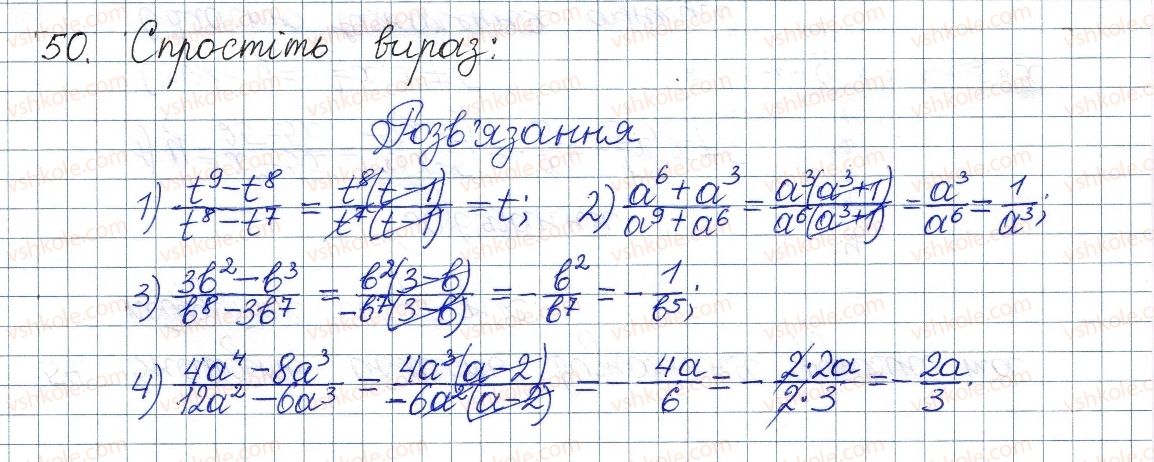 50. Спростіть вираз:
Розв'язання
1) (t⁹-t⁸)/(t⁸-t⁷) = (t⁸(t-1))/(t⁷(t-1)) = t; 2) (a⁶+a³)/(a⁹+a⁶) = (a³(a³+1))/(a⁶(a³+1)) = a³/a⁶ = 1/a³;
3) (3b²-b³)/(b⁸-3b⁷) = (b²(3-b))/(-b⁷(3-b)) = -b²/b⁷ = -1/b⁵;
4) (4a⁴-8a³)/(12a²-6a³) = (4a³(a-2))/(-6a²(a-2)) = -4a/6 = -(2·2a)/(2·3) = -2a/3.